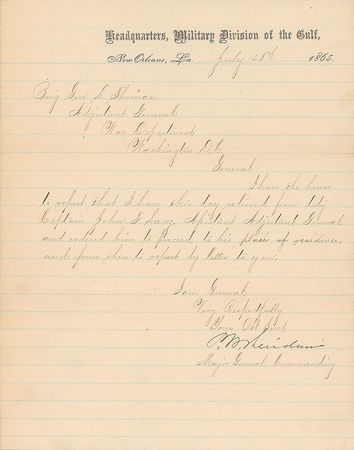 Headquarters, Military Division of the Gulf,
New Orleans, La. July 28th 1865.
Brig Gen L Thomas
Adjutant General
War Department
Washington D.C.
General
I have the honor
to report that I have this day relieved from duty
Captain John S. Lacy, Assistant Adjutant General
and ordered him to proceed to his place of residence,
and from there to report by letter to you.
I am General
Very Respectfully
Your Obt Servt
P. H. Sheridan
Major General Commanding